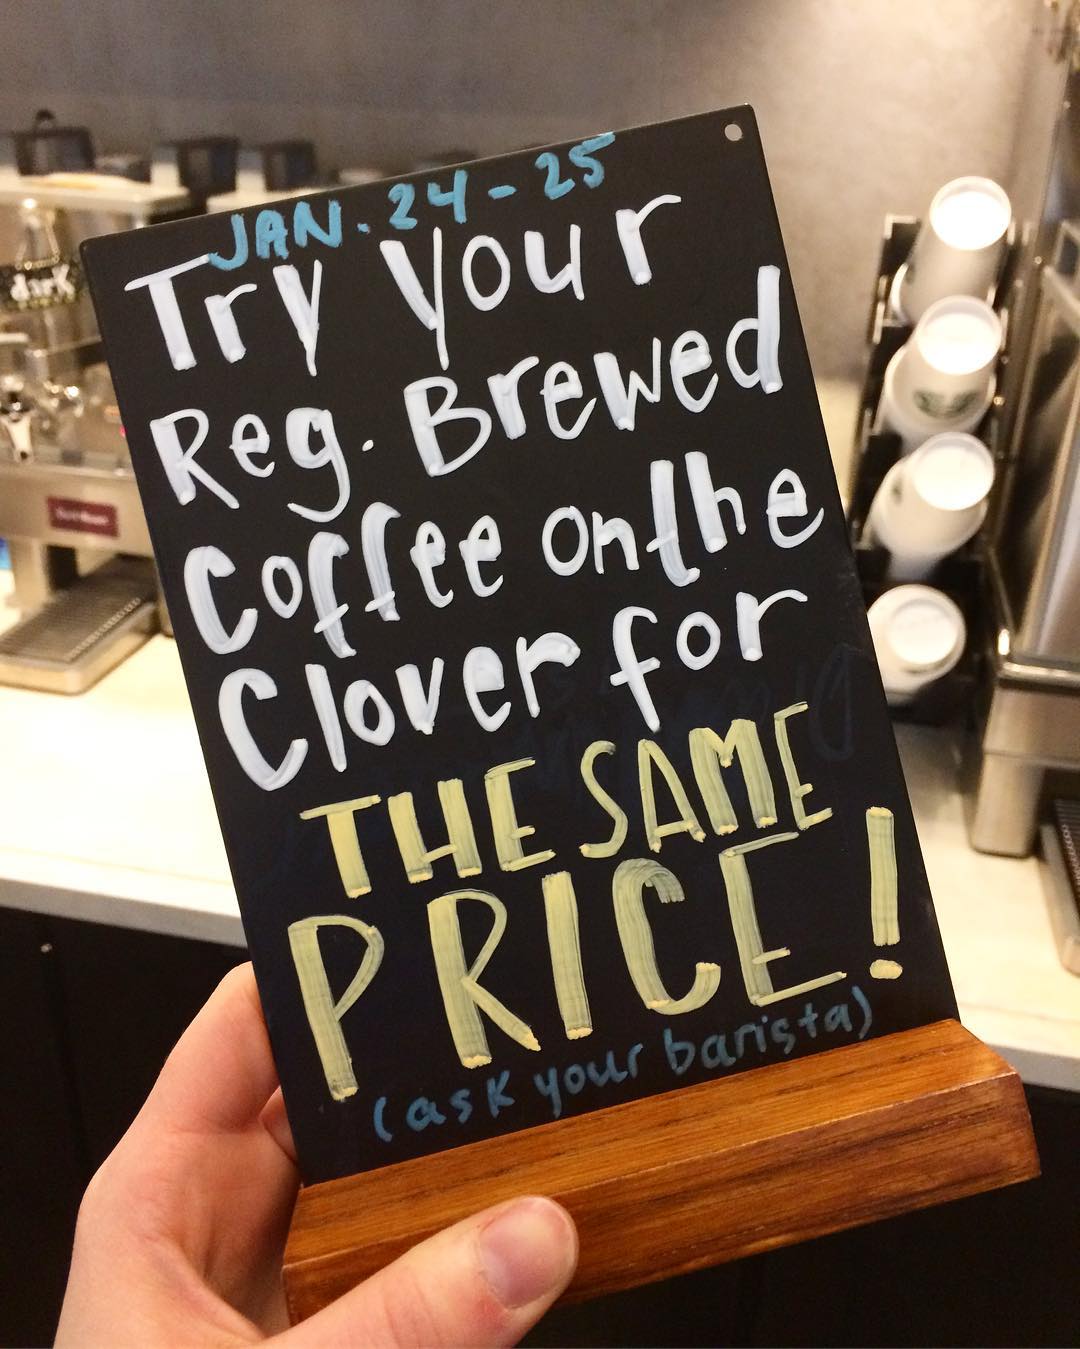 JAN. 24-25
Try Your
Reg. Brewed
Coffee on the
Clover for
THE SAME
PRICE!
(ask your barista)
dark